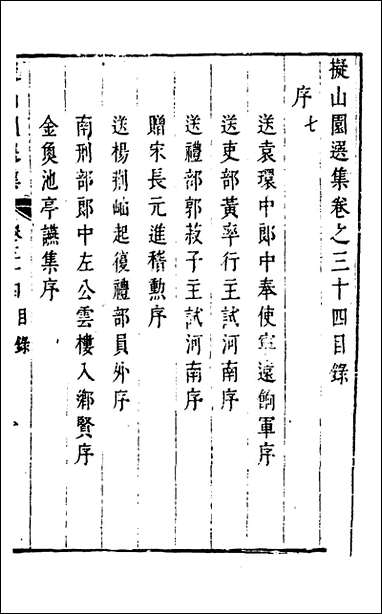 擬山園選集卷之三十四目錄
序七
送袁環中郎中奉使寧遠餉軍序
送吏部黃率行主試河南序
送禮部郭菽子主試河南序
贈宋長元進稽勲序
送楊荆岫起復禮部員外序
南刑部郎中左公雲樓入鄉賢序
金魚池亭讌集序
目錄